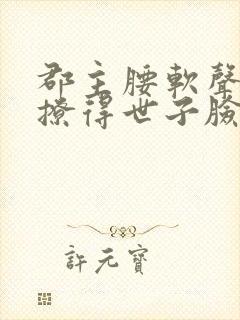 郡主腰軟聲
撩得世子臉
許元寶